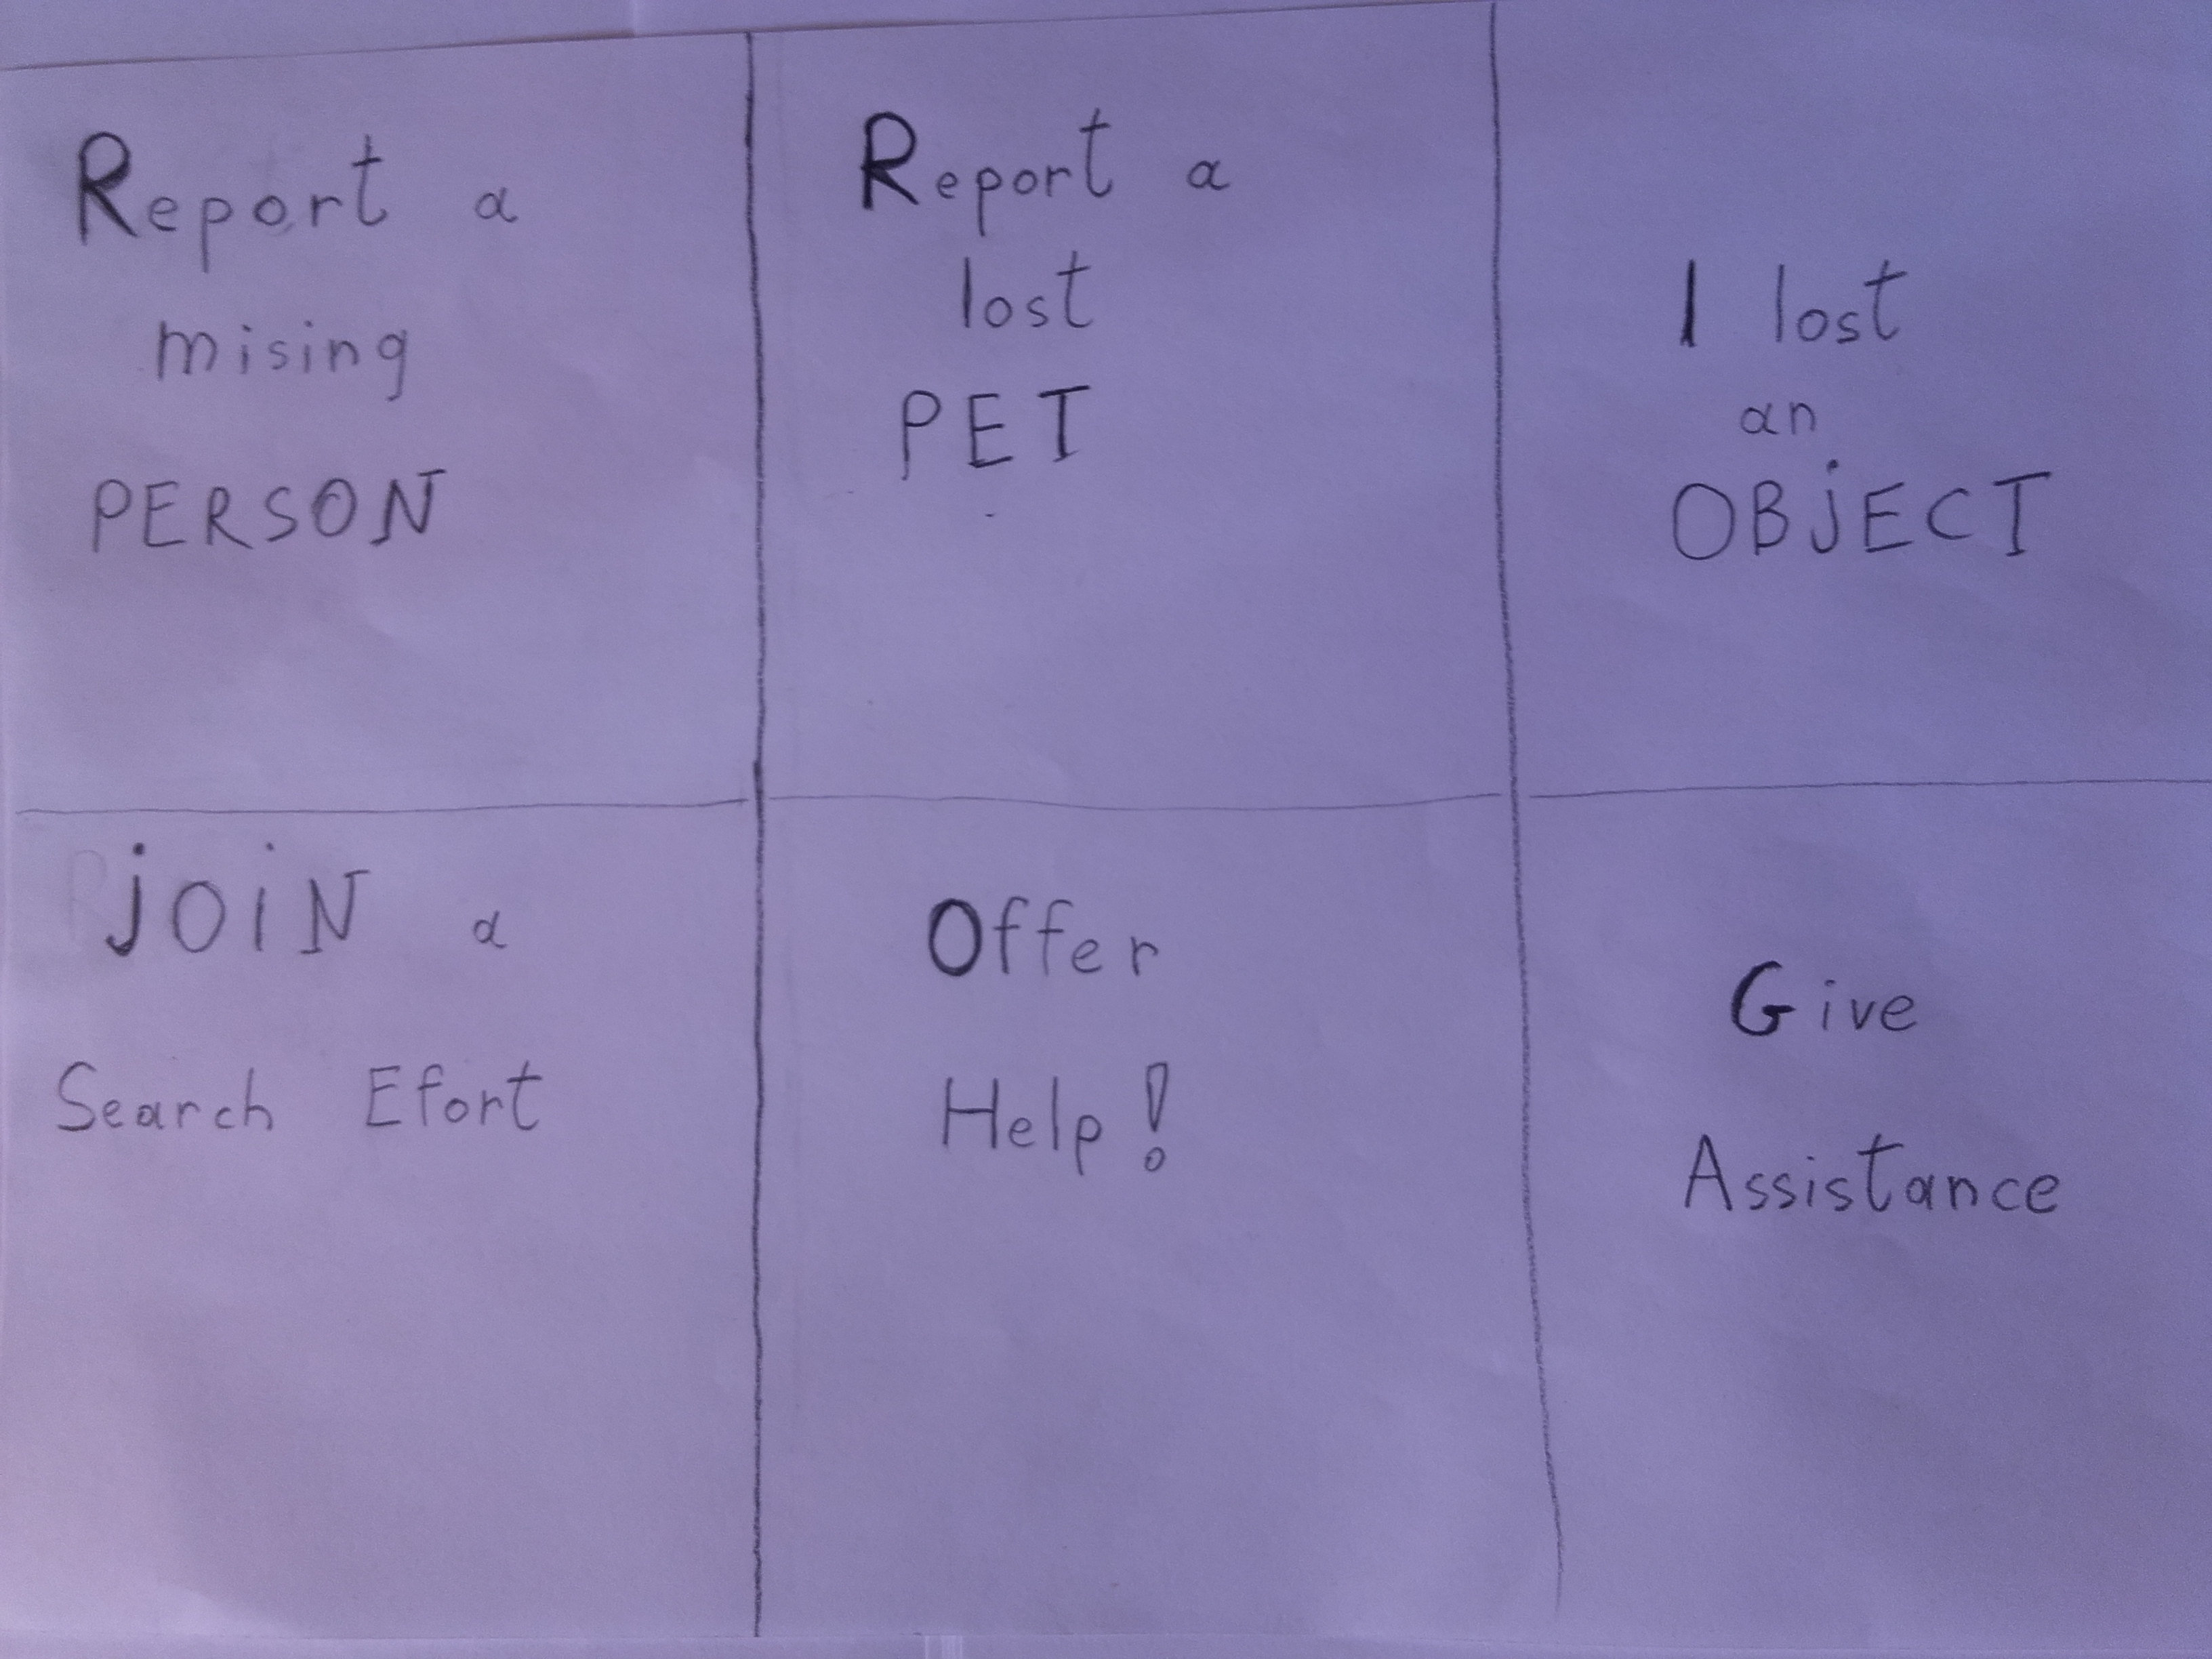 Report a
mising
PERSON
Report a
lost
PET
I lost
an
OBjECT
jOiN a
Search Efort
Offer
Help!
Give
Assistance